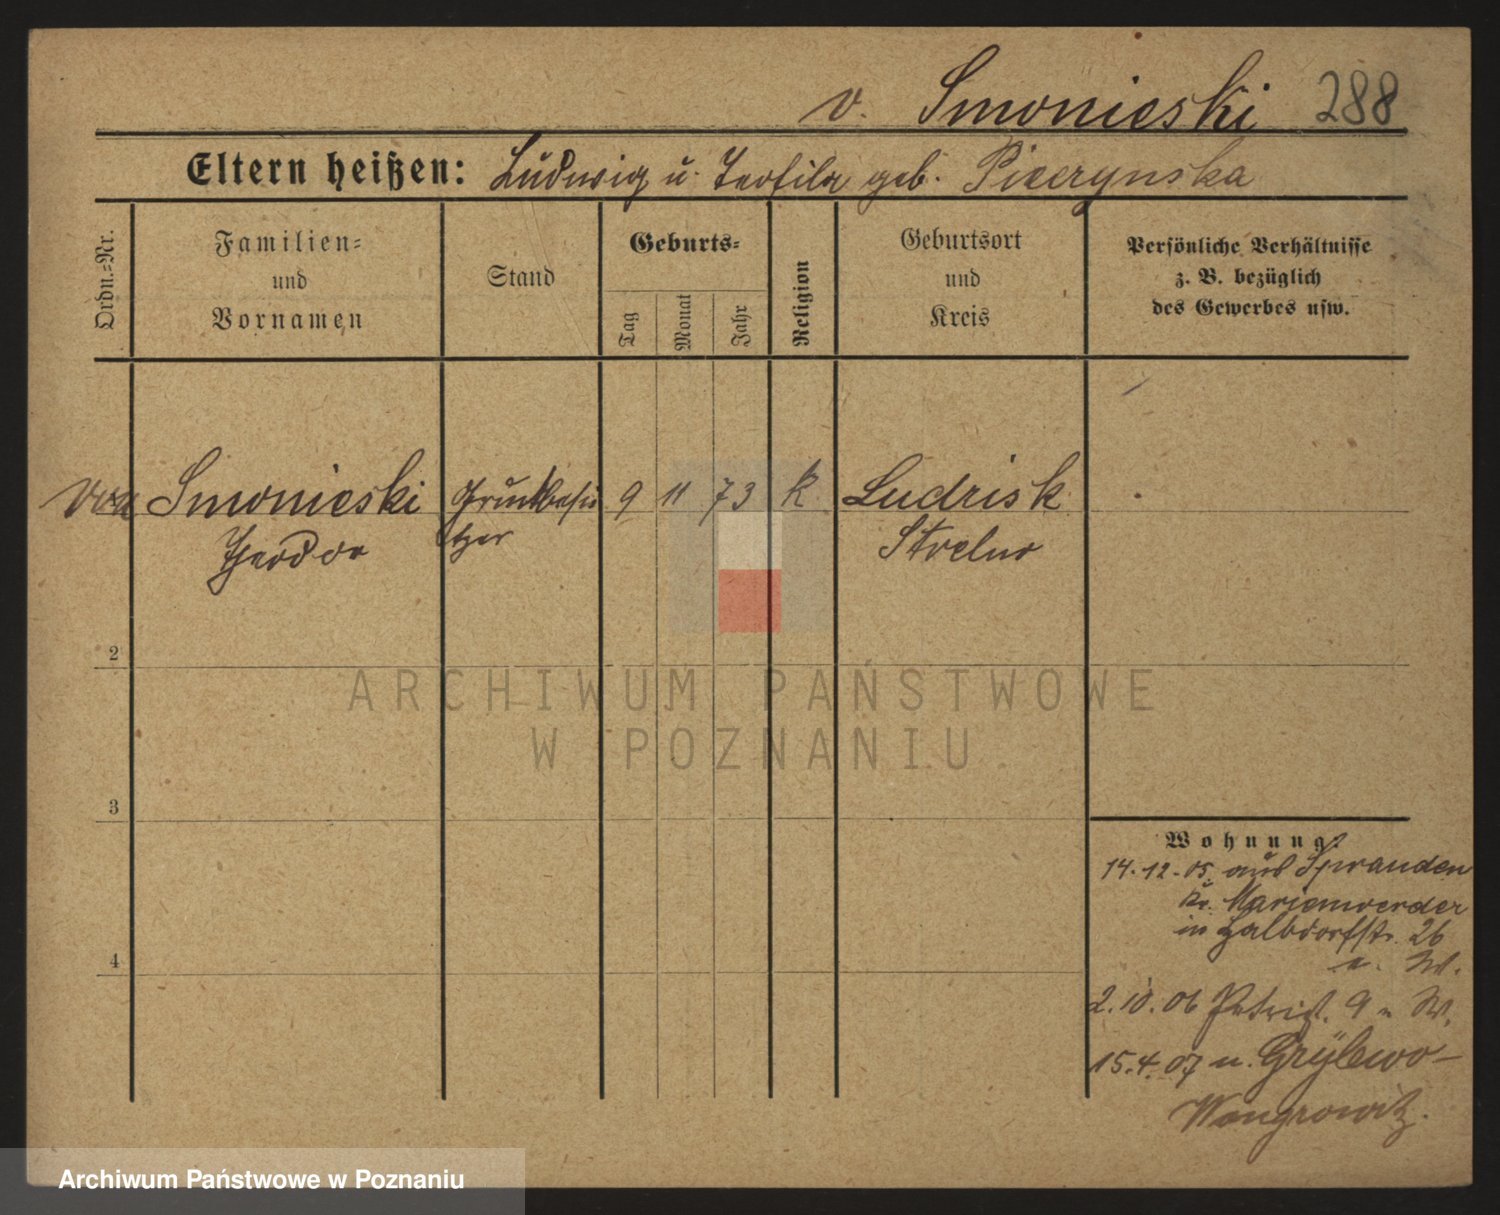 v. Smonieski 288
Eltern heißen: Ludwig u. Teofila geb. Picerynska
Ordn.=Nr.
Familien=
und
Vornamen
Stand
Geburts=
Tag
Monat
Jahr
Religion
Geburtsort
und
Kreis
Persönliche Verhältnisse
z. B. bezüglich
des Gewerbes usw.
von Smonieski Grundbesi 9 11 73 k. Ludzisk
Theodor tzer Strelno
2
ARCHIWUM PAŃSTWOWE
W POZNANIU
3
Wohnung:
14.12.05. aus
Kr. Marienwerder
in Halbdorfstr. 26
4
2.10.06 Petrist. 9
15.4.07 n. Grylewo-
Wongrowitz.
Archiwum Państwowe w Poznaniu